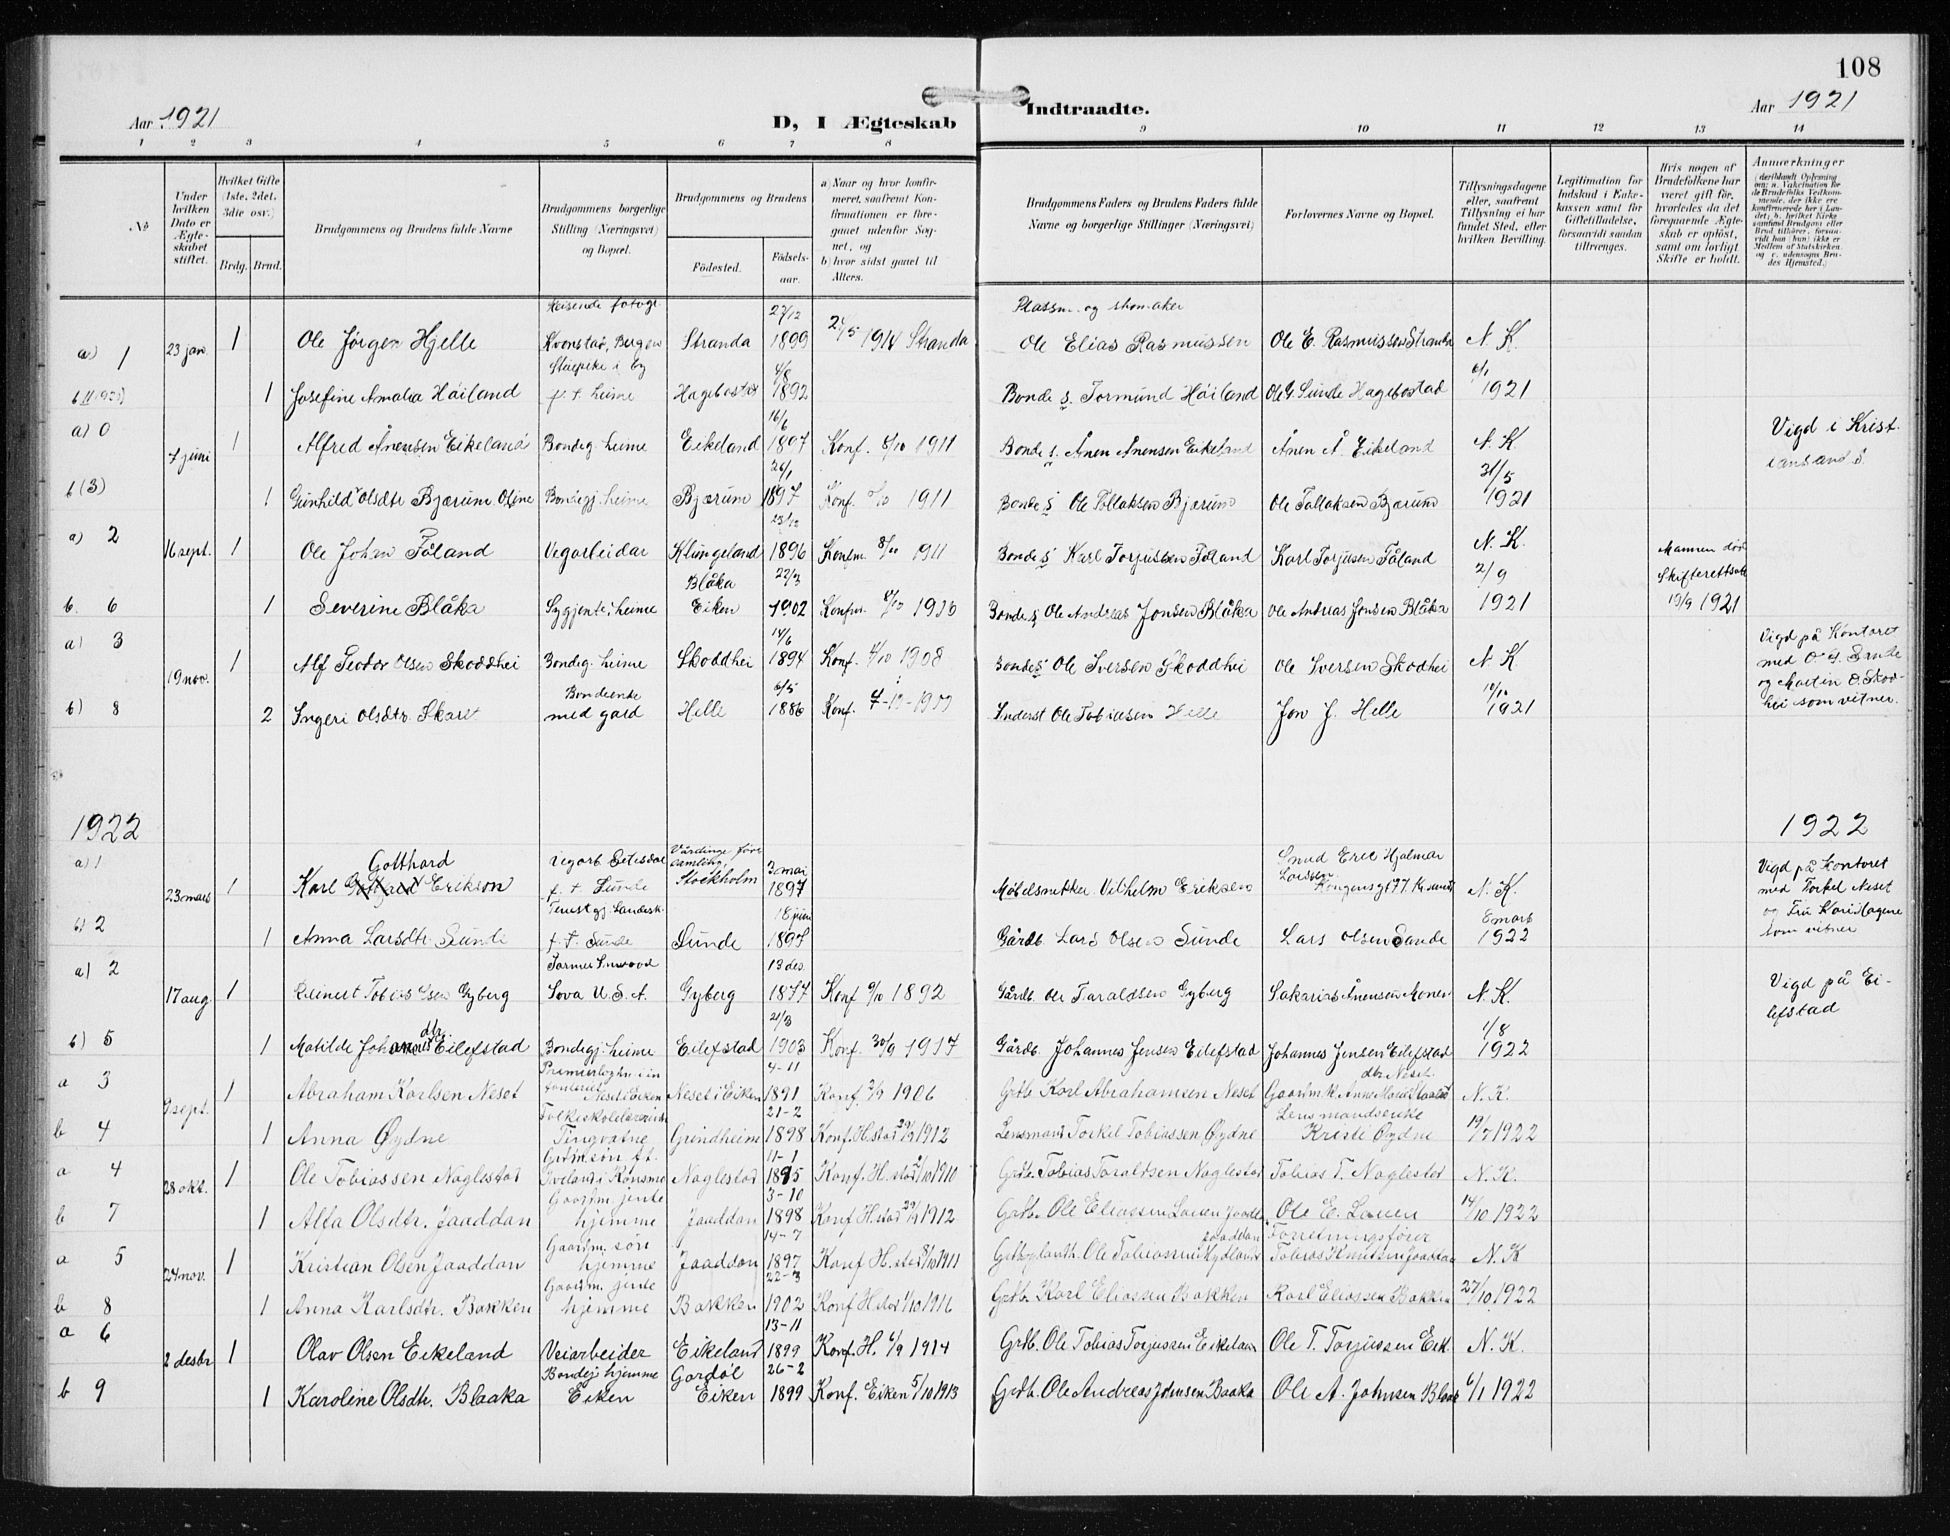 108
Aar 1921
D, I Ægteskab Indtraadte.
Aar 1921
1 2 3 4 5 6 7 8 9 10 11 12 13 14
No
Under hvilken Dato er Ægteskabet stiftet.
Hvilket Gifte (1ste, 2det, 3die osv.)
Brdg. Brud.
Brudgommens og Brudens fulde Navne
Brudgommens borgerlige Stilling (Næringsvei) og Bopæl.
Brudgommens og Brudens
Födested.
Födselsaar.
a) Naar og hvor konfirmeret, saafremt Konfirmationen er foregaaet udenfor Sognet, og
b) hvor sidst gaaet til Alters.
Brudgommens Faders og Brudens Faders fulde Navne og borgerlige Stillinger (Næringsvei)
Forlovernes Navne og Bopæl.
Tillysningsdagene eller, saafremt Tillysning ei har fundet Sted, efter hvilken Bevilling.
Legitimation for Indskud i Enkekassen samt for Giftetilladelse, forsaavidt saadan tiltrænges.
Hvis nogen af Brudefolkene har været gift før, hvorledes da det foregaaende Ægteskab er opløst, samt om lovligt Skifte er holdt.
Anmærkninger
(deriblandt Oplysning om: a. Vakcination for de Brudefolks Vedkommende, der ikke ere konfirmerede her i Landet; b. hvilket Kirkesamfund Brudgom eller Brud tilhører, forsaavidt han (hun) ikke er Medlem af Statskirken, og c. udensogns Brudes Hjemsted.)
Reisende fotogr. 27/12 Plassm. og skomaker
a) 1 23 jan. 1 Ole Jørgen Hjelle Kvonstad, Bergen Stranda 1899 1914 Stranda Ole Elias Rasmussen Ole E. Rasmussen Stranda N. K.
i by
1 Josefine Amalia Høiland p. t. heime Hagebostad 1892 Bonde s. Tormund Høiland Ole G. Sunde Hagebostad 6/1 1921
16/6
a) 0 7 juni 1 Alfred Ånensen Eikeland Bondeg. heime Eikeland 1897 Konf. 8/10 1911 Bonde s. Ånen Ånensen Eikeland Ånen Å. Eikeland N. K. Vigd i Krist-
26/1 31/5 iansand S.
b (3) 1 Gunhild Olsdtr Bjærum Oline Bondegj. heime Bjærum 1897 Konf. 1911 Bonde s. Ole Tollaksen Bjærum Ole Tollaksen Bjærum 1921
23/12
a) 2 16 sept. 1 Ole Johan Føland Vegarbeidar Klungeland 1896 Konfm. 8/10 1911 Bonde s. Karl Torjussen Føland Karl Torjusen Føland N. K. Mannen død
Blåka 22/3 2/9 Skifterettsatt
b. 6 1 Severine Blåka Sygjente, heime Eiken 1902 Konfm. Bonde s. Ole Andreas Jonsen Blåka Ole Andreas Jonsen Blåka 1921 19/9 1921
14/6 Vigd på Kontoret
a) 3 19 nov. 1 Alf Teodor Olsen Skoddhei Bondeg. heime Skoddhei 1894 Konf. 4/10 1908 Bonde s. Ole Iversen Skoddhei Ole Iversen Skodhei N. K. med O. G. Sunde
Bondeenke 6/5 10/10 og Martin O. Skod-
b) 8 2 Ingeri Olsdtr. Skare med gard Helle 1886 Konf. Inderst Ole Tobiasen Helle Jon J. Helle 1921 hei som vitner.
1922 1922
Gotthard Vegarb. Setesdal 3 mai Knud Eric Hjalmar Vigd på Kontoret
a) 1 23 mars 1 Karl Erikson p. t. Sunde Stockholm 1897 Møbelsnekker Vilhelm Eriksen Larssen Kongensgt 77 Kr. sand N. K. med Torkel Neset
Tenestgj. Landesk. 18 juni 8 mars og Fru Kari Hagene
b) 2 1 Anna Larsdtr Sunde p. t. Sunde Sunde 1897 Gårdb. Lars Olsen Sunde Lars Olsen Sunde 1922 som vitner
Farmer 13 des.
a) 2 17 aug. 1 Reinert Tobias Olsen Gyberg Iova U. S. A. Gyberg 1877 Konf 9/10 1892 Gårdb. Ole Taraldsen Gyberg Sakarias Ånensen Monen N. K. Vigd på Ei-
dtr. 21/3 1/8 lefstad
b) 5 1 Matilde Johannes Eilefstad Bondegj. heime Eilefstad 1903 Konf. 30/9 1917 Gårdb. Johannes Jensen Eilefstad Johannes Jensen Eilefstad 1922
4-11
a 3 9 sept. 1 Abraham Karlsen Neset Neset i Eiken Neset i Eiken 1891 Konf. 2/9 1906 Grdb. Karl Abrahamsen Neset N. K.
Folkeskolelærerinde 21-2 Lensmandsenke
b 4 1 Anna Øydne Tingvatne Grindheim 1898 Konf. H.stad 29/9 1912 Lensmand Torkel Tobiassen Øydne Kristi Øydne 19/7 1922
11-1
a 4 28 okt. 1 Ole Tobiassen Naglestad Naglestad 1895 Konf. H. stad 2/10 1910 Grdb. Tobias Taraldsen Naglestad Tobias T. Naglestad N. K.
Gaardm. jente 3-10
b 7 1 Alfa Olsdtr. Jaaddan hjemme Jaaddan 1898 Konf. H.stad 29/9 1912 Grdb. Ole Eliassen Lauen Jaadd. Ole E. Lauen 14/10 1922
Gaardm. søn 14-7 Jaaddan Forretningsfører
a 5 24 nov. 1 Kristian Olsen Jaaddan hjemme Jaaddan 1897 Konf H.stad 8/10 1911 Ole Tobiassen Kydland Tobias Knutsen Jaaddan N. K
Gaardm. jente 22-3
b 8 1 Anna Karlsdtr. Bakken hjemme Bakken 1902 Konf H.stad 1/10 1916 Grdb. Karl Eliassen Bakken Karl Eliassen Bakken 27/10 1922
13-11
a 6 2 desbr 1 Olav Olsen Eikeland Veiarbeider Eikeland 1899 Konf. H. 6/9 1914 Grdb. Ole Tobias Torjussen Eikeland Ole T. Torjussen Eik. N. K.
Bondej. hjemme Gardöl 26-2
b 9 1 Karoline Olsdtr. Blaaka Eiken Eiken 1899 Konf. Eiken 5/10 1913 Grdb. Ole Andreas Johnsen Baaka Ole A. Johnsen Blaak 6/1 1922